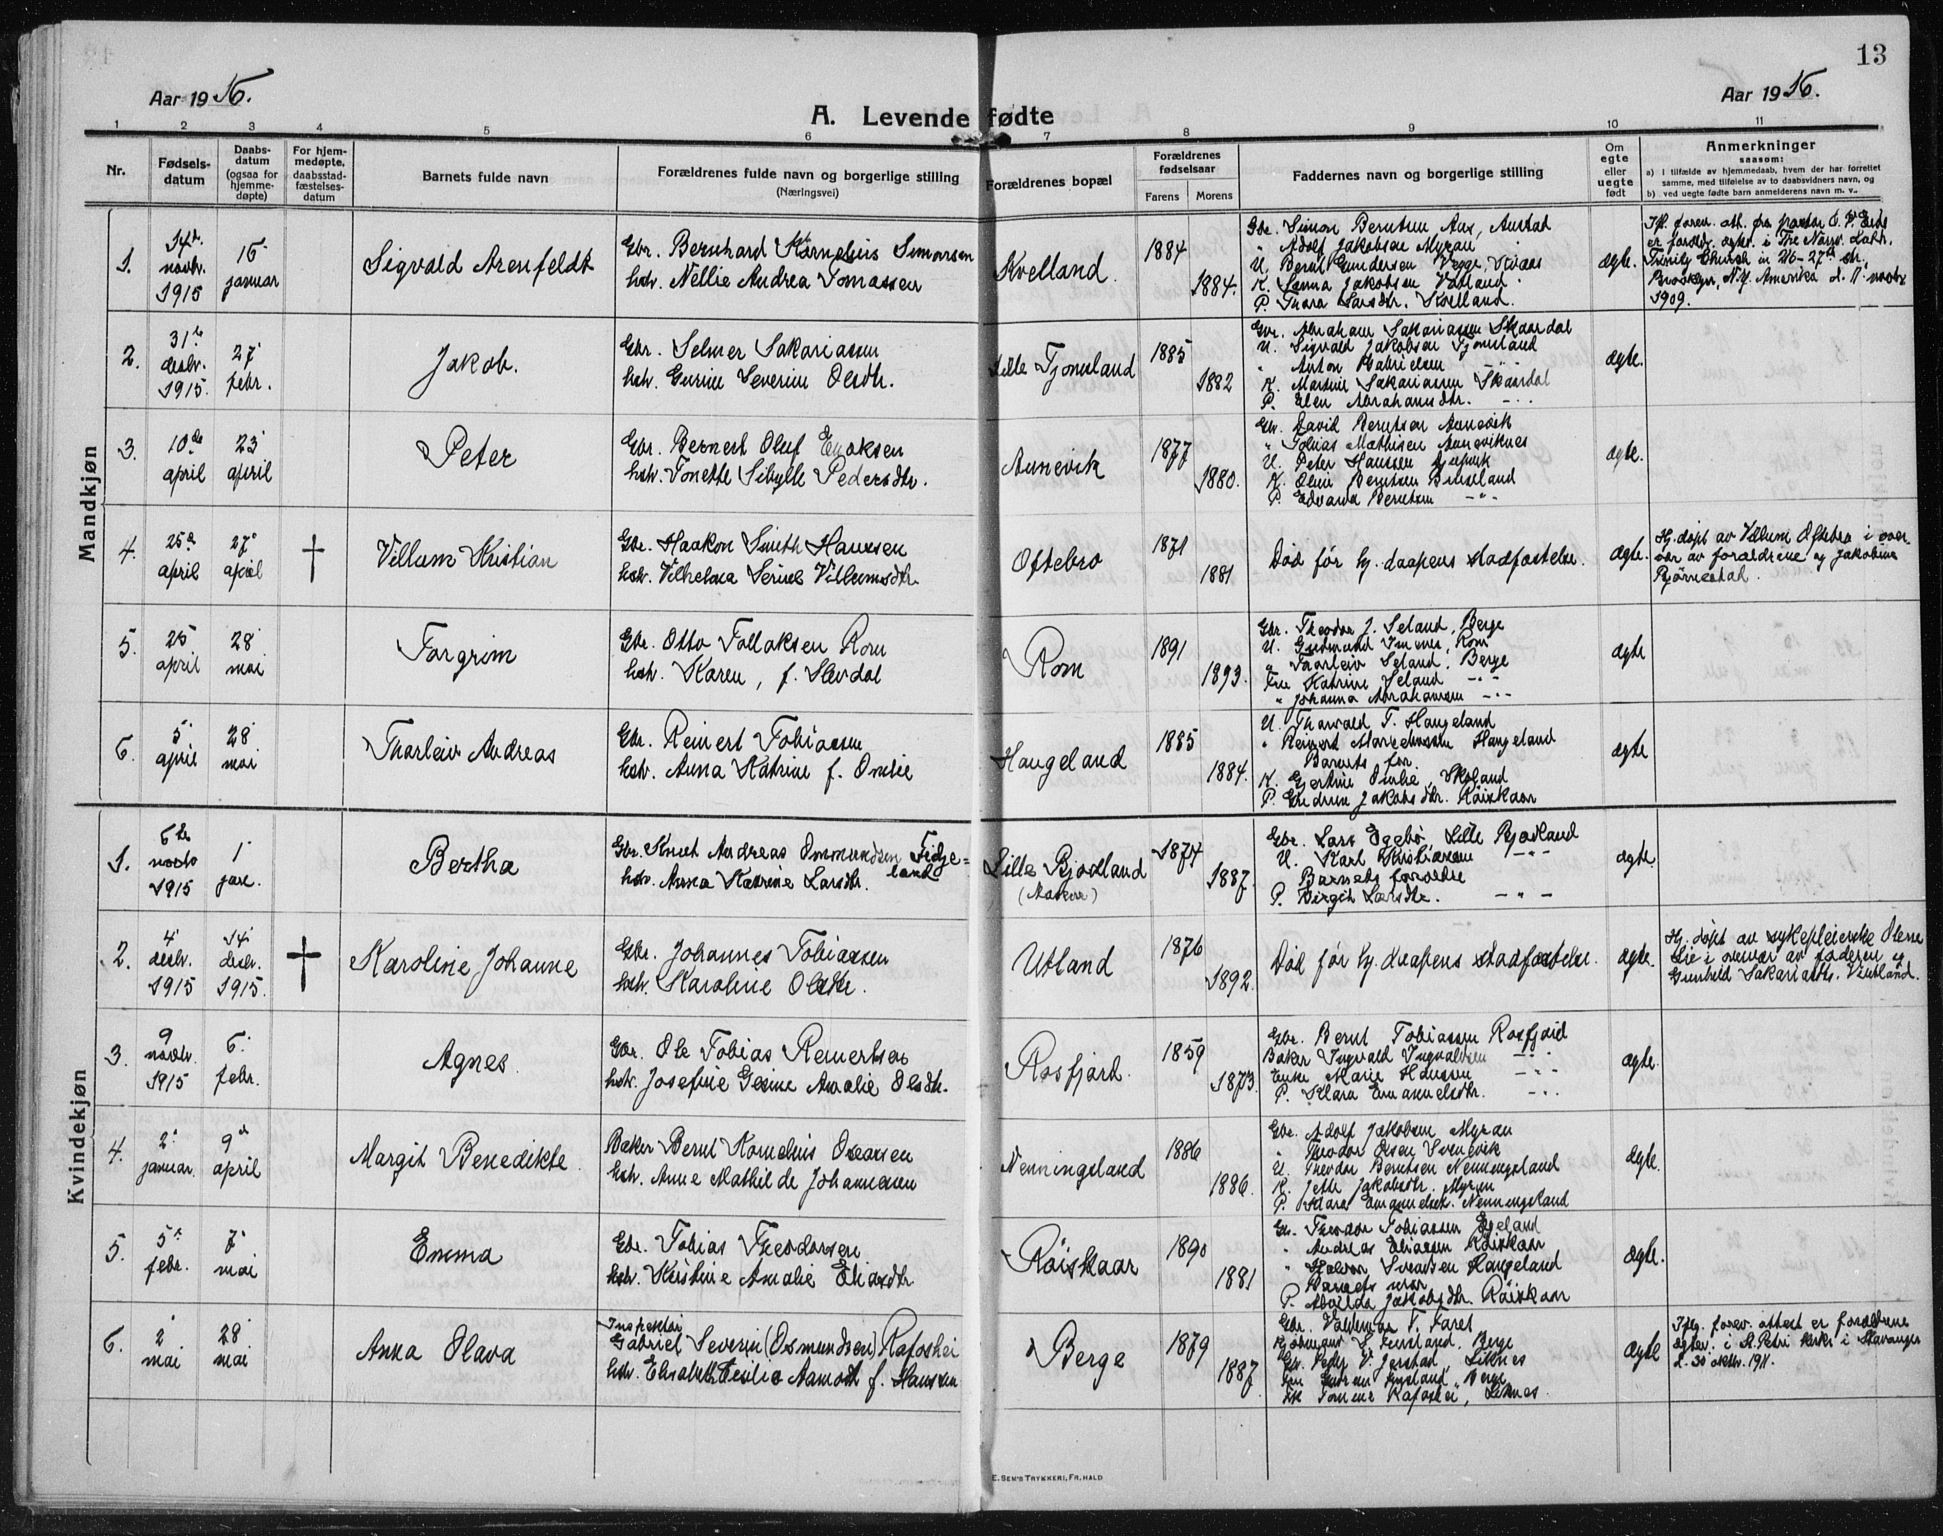 13
Aar 1916.
Aar 1916.
A. Levende fødte
1 2 3 4 5 6 7 8 9 10 11
Nr.
Fødsels-
datum
Daabs-
datum
(ogsaa for
hjemme-
døpte)
For hjem-
medøpte,
daabsstad-
fæstelses-
datum
Barnets fulde navn
Forældrenes fulde navn og borgerlige stilling
(Næringsvei)
Forældrenes bopæl
Forældrenes
fødselsaar
Farens Morens
Faddernes navn og borgerlige stilling
Om
egte
eller
uegte
født
Anmerkninger
saasom:
a) I tilfælde av hjemmedaab, hvem der har forrettet
samme, med tilføielse av to daabsvidners navn, og
b) ved uegte fødte barn anmelderens navn m. v..
Mandkjøn
1.
14de
novbr.
1915
16
januar
Sigvald Arenfeldt
Gbr. Bernhard Kornelius Simonsen
hstr. Nellie Andrea Tomassen
Kvelland.
1884
1884.
Gbr. Simon Berntsen Aas, Austad
" Adolf Jakobsen Myran
U. Bernt Gundersen Vegge,
K. Sanna Jakobsen
P. Thora Larsdtr. Kvelland.
ægte.
Ifl. forev. att. fra pastor
er forældr. egtev. i The Norw. Luth.
Trinity Church in 26-27th str.,
Brooklyn, N.Y. Amerika d. 11 novbr
1909.
2.
31te
desbr.
1915.
27
febr.
Jakob.
Gbr. Selmer Sakariassen
hstr. Gurine Severine Olsdtr.
Lille Tjomsland
1885
1882
Gbr. Abraham Sakariassen Skaardal
U. Sigvald Jakobsen Tjomsland
" Anton Gabrielsen -"-
K. Martine Sakariassen Skaardal
P. Elen Abrahamsdtr. -"-
ægte.
3.
10de
april
23
april
Peter
Gbr. Bernert Oluf Enoksen
hstr. Tonette Sibylle Pedersdtr.
Aunevik
1877
1880.
Gbr. David Berntsen Aunevik
" Tobias Mathisen Auneviknes
U. Peter Hanssen
K. Oline Berntsen
P. Edvarda Berntsen -"-
ægte.
4.
25de
april
27
april
†
Villum Kristian
Gbr. Haakon Smith Hanssen
hstr. Vilhelma Serine Villumsdtr.
Oftebro
1871
1881
Død før hj. daapens stadfæstelse.
ægte.
Hj. døpt av Villum Oftebro i over-
vær av forældrene og Jakobine
Bjørnestad.
5.
25
april
28
mai
Torgrim
Gbr. Otto Tollaksen Rom
hstr. Karen, f. Slevdal
Rom
1891
1893.
Gbr. Theodor J. Seland, Berge
U. Gudmund Rom
" Taarleiv Seland, Berge
Fru Katrine Seland -"-
" Johanna Abrahamsen -"-
ægte
6.
5
april
28
mai
Tharleiv Andreas
Gbr. Reinert Tobiassen
hstr. Anna Katrine f. Omlie
Haugeland
1885
1884.
U. Tharvald T. Haugeland
" Reinert Haugeland
Barnets far
K. Gjertine Omlie,
P. Gudrun Jakobsdtr. Röiskaar
ægte
Kvindekjøn
1.
6te
novbr
1915
1
jan.
Bertha
Gbr. Knut Andreas Ommundsen Fidje=
land
hstr. Anna Katrine Larsdtr.
Lille Bjodland
1874
1887.
Gbr. Lars Egebø, Lille Bjodland
U. Karl Kristiansen -"-
Barnets forældre
P. Birgit Larsdtr. -"-
ægte.
2.
4
desbr.
1915
14
desbr.
1915.
†
Karoline Johanne
Gbr. Johannes Tobiassen
hstr. Karoline
Utland
1876
1892.
Død før hj. daapens stadfæstelse.
ægte.
Hj. døpt av sykepleierske Olene
Lie i overvær av faderen og
Gunhild Sakariasdtr.
3.
9
novbr.
1915
6
febr.
Agnes.
Gbr. Ole Tobias Reinertsen
hstr. Josefine Gesine Amalie Olsdtr.
Rosfjord.
1859
1873.
Gbr. Bernt Tobiassen Rosfjord
Baker Ingvald Ingvaldsen -"-
Enke Marie Hanssen -"-
P. Klara Emanuelsdtr. -"-
ægte.
4.
2
januar.
9de
april
Margit Benedikte
Baker Bernt Kornelius
hstr. Anne Mathilde Johannesen
Nenningsland
1886
1886.
Gbr. Adolf Jakobsen Myran
" Theodor Olsen Svenevik
U. Theodor Berntsen Nenningsland
K. Jette Jakobsdtr. Myran
P. Klara Emanuelsdtr. Nenningsland
ægte.
5.
5te
febr.
7
mai
Emma
Gbr. Tobias Theodorsen
hstr. Kristine Amalie Eliasdtr
Röiskaar
1890
1881
Gbr. Theodor Tobiassen Egeland
" Andreas Eliassen Röiskaar
" Halvor Svendsen Haugeland
Barnets mor
P. Alvilda Jakobsdtr. Röiskaar
ægte.
6.
2
mai
28
mai
Anna Olava
Inspektør
Gabriel Severin (Osmundsen) Rafoshei
hstr. Elisabeth Cesilie Aamodt f. Hanssen
Berge
1879
1887.
Gbr. Valdemar T. Faret
Kjøbmand Berge
Gbr. Peder V. Jerstad, Liknes
Berge
Tomine Rafoshei, Liknes.
ægte
Iflg. forev. attest er forældrene
egtev. i St. Petri kirke i Stavanger
d. 30 oktbr. 1911.
E. SEM'S TRYKKERI, FR. HALD